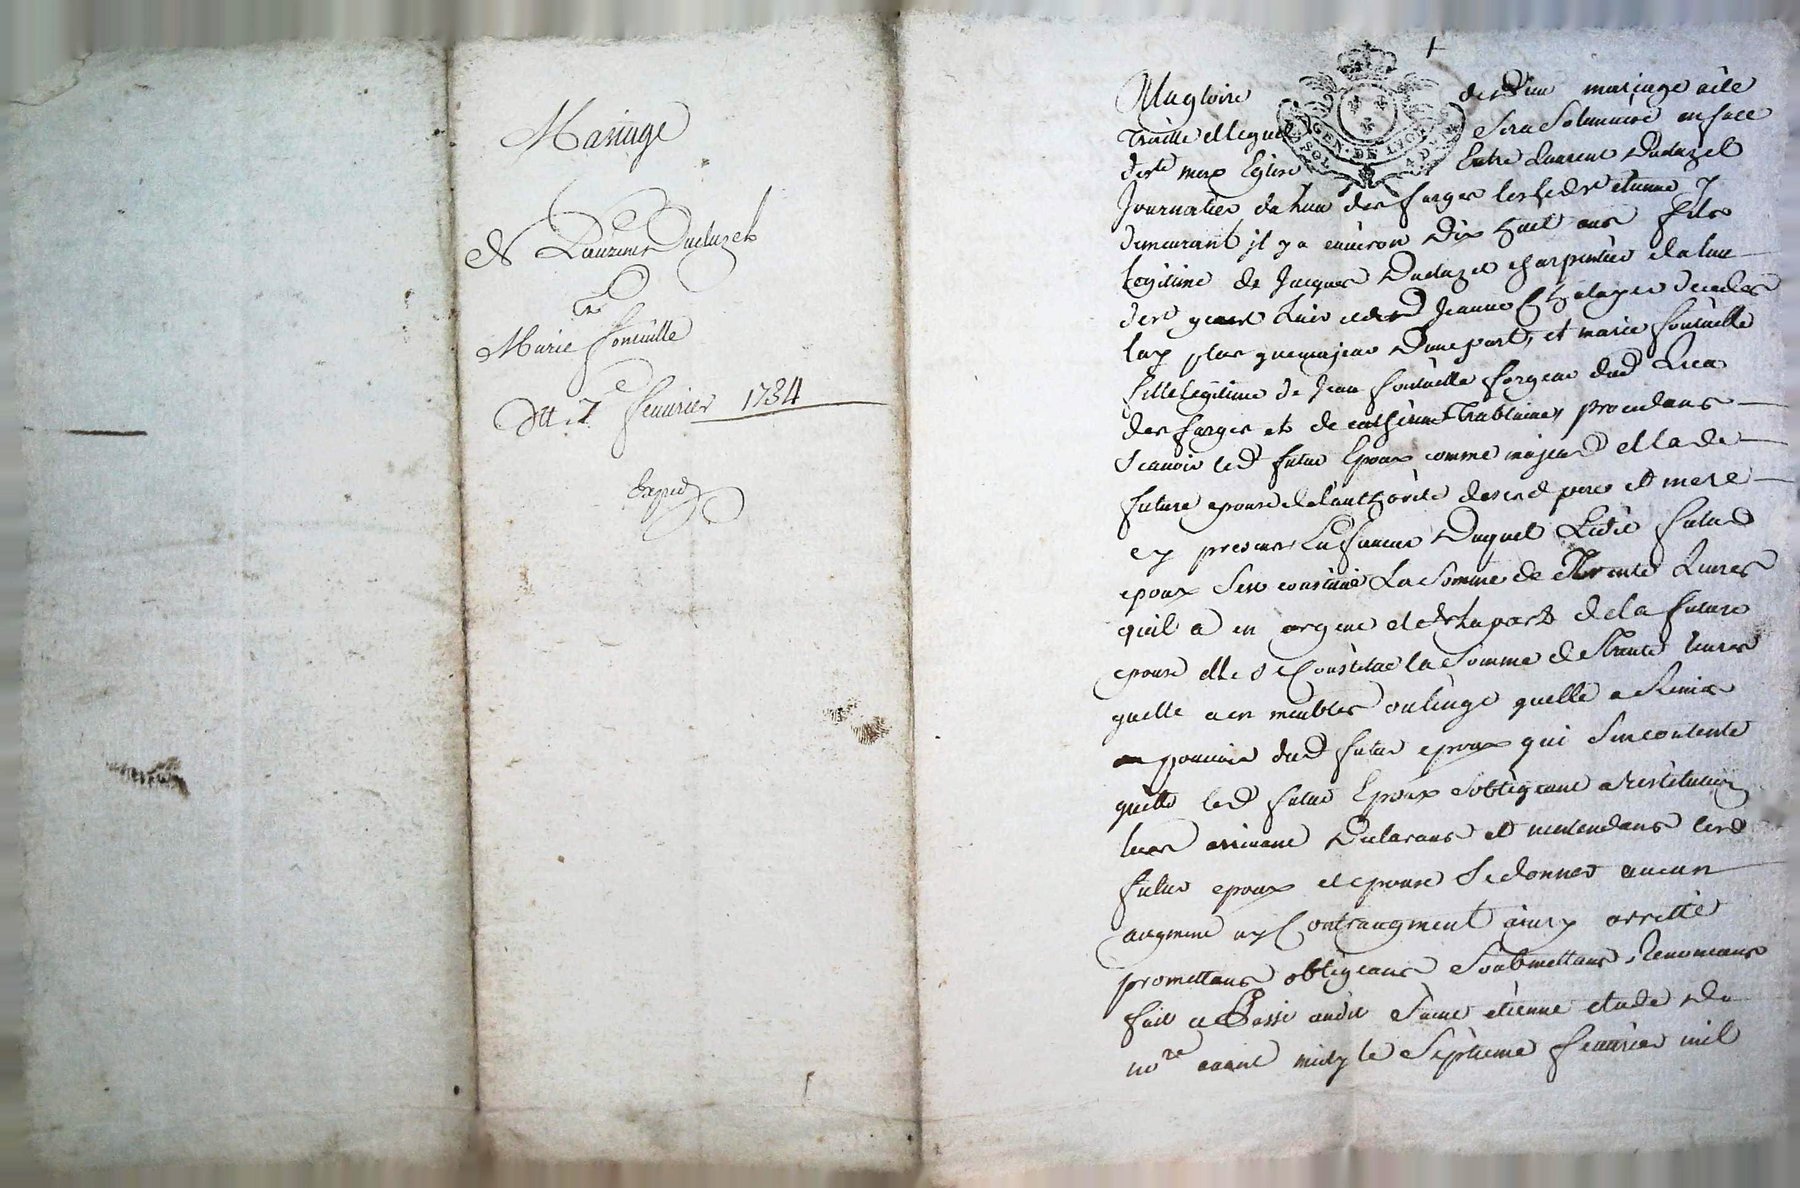 Mariage
de Laurent Duduzet
et
Marie Fontuille
Du 7e feuurier 1734
Exped
GEN. DE LYON
Alagloire de Dieu mariage a ete
Traitté et lequel sera solennisé en face
de ste mere Eglise Entre Laurent Duduzel
Journalier du lieu des farges les St etienne y
demeurant il y a enuiron dix huit ans fils
legitime de Jacques Duduzel charpentier du lieu
de et de Jeanne decedes
luy plus que majeur d'une part, et marie fontuille
fille legitime de Jean fontuille forgeur dud lieu
des farges et de catherine Trablaine, procedans
scauoir led futur Epoux comme majeur et lade
future epouse de l'authorité desesd pere et mere
cy presens En faueur duquel Ledit futur
epoux s'est constitué La somme de Trente Liures
quil a en argent et de la part de la future
epouse elle se Constitue la somme de Trante liures
quelle a en meubles ou linge quelle a Remis
au pouuoir dud futur epoux qui s'en contente
quitte led futur Epoux sobligeant a restituer
leur arriuant declarans et n'entendans lesd
futur epoux et epouse se donner aucun
augment ny Contraugment ainsy arretté
promettans obligeans soubmettans, Renoncans
fait et Passé audit saint etienne etude du
nore auant midy le septieme feuurier mil